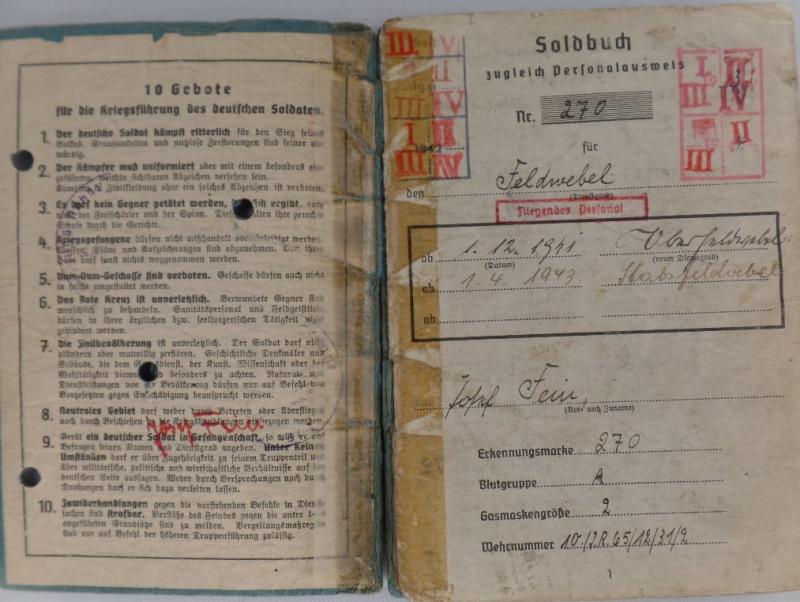 10 Gebote
für die Kriegsführung des deutschen Soldaten.
1. Der deutsche Soldat kämpft ritterlich für den Sieg seines
Volkes. Grausamkeiten und nutzlose Zerstörungen sind seiner un-
würdig.
2. Der Kämpfer muß uniformiert oder mit einem besonders ein-
geführten, weithin sichtbaren Abzeichen versehen sein.
Kämpfen in Zivilkleidung ohne ein solches Abzeichen ist verboten.
3. Es darf kein Gegner getötet werden, der sich ergibt, auch
nicht der Freischärler und der Spion. Diese erhalten ihre gerechte
Strafe durch die Gerichte.
4. Kriegsgefangene dürfen nicht mißhandelt oder beleidigt werden.
Waffen, Pläne und Aufzeichnungen sind abzunehmen. Von ihrer
Habe darf sonst nichts weggenommen werden.
5. Dum-Dum-Geschosse sind verboten. Geschosse dürfen auch nicht
in solche umgestaltet werden.
6. Das Rote Kreuz ist unverletzlich. Verwundete Gegner sind
menschlich zu behandeln. Sanitätspersonal und Feldgeistliche
dürfen in ihrer ärztlichen bzw. seelsorgerischen Tätigkeit nicht
gehindert werden.
7. Die Zivilbevölkerung ist unverletzlich. Der Soldat darf nicht
plündern oder mutwillig zerstören. Geschichtliche Denkmäler und
Gebäude, die dem Gottesdienst, der Kunst, Wissenschaft oder der
Wohltätigkeit dienen, sind besonders zu achten. Natural- und
Dienstleistungen von der Bevölkerung dürfen nur auf Befehl von
Vorgesetzten gegen Entschädigung beansprucht werden.
8. Neutrales Gebiet darf weder durch Betreten oder Überfliegen
noch durch Beschießen in die Kriegshandlungen einbezogen werden.
9. Gerät ein deutscher Soldat in Gefangenschaft, so muß er auf
Befragen seinen Namen und Dienstgrad angeben. Unter keinen
Umständen darf er über Zugehörigkeit zu seinem Truppenteil und
über militärische, politische und wirtschaftliche Verhältnisse auf der
deutschen Seite aussagen. Weder durch Versprechungen noch durch
Drohungen darf er sich dazu verleiten lassen.
10. Zuwiderhandlungen gegen die vorstehenden Befehle in Dienst-
sachen sind strafbar. Verstöße des Feindes gegen die unter 1-
angeführten Grundsätze sind zu melden. Vergeltungsmaßregeln
sind nur auf Befehl der höheren Truppenführung zulässig.
Soldbuch
zugleich Personalausweis
Nr. 270
für
den Feldwebel
(Dienstgrad)
Fliegendes Personal
ab 1.12.1941 Oberfeldwebel
(Datum) (neuer Dienstgrad)
ab 1.4 1943 Stabsfeldwebel
ab
Josef Fein,
(Vor- und Zuname)
Erkennungsmarke 270
Blutgruppe A
Gasmaskengröße 2
Wehrnummer 10./J.R.65/12/31/2
1